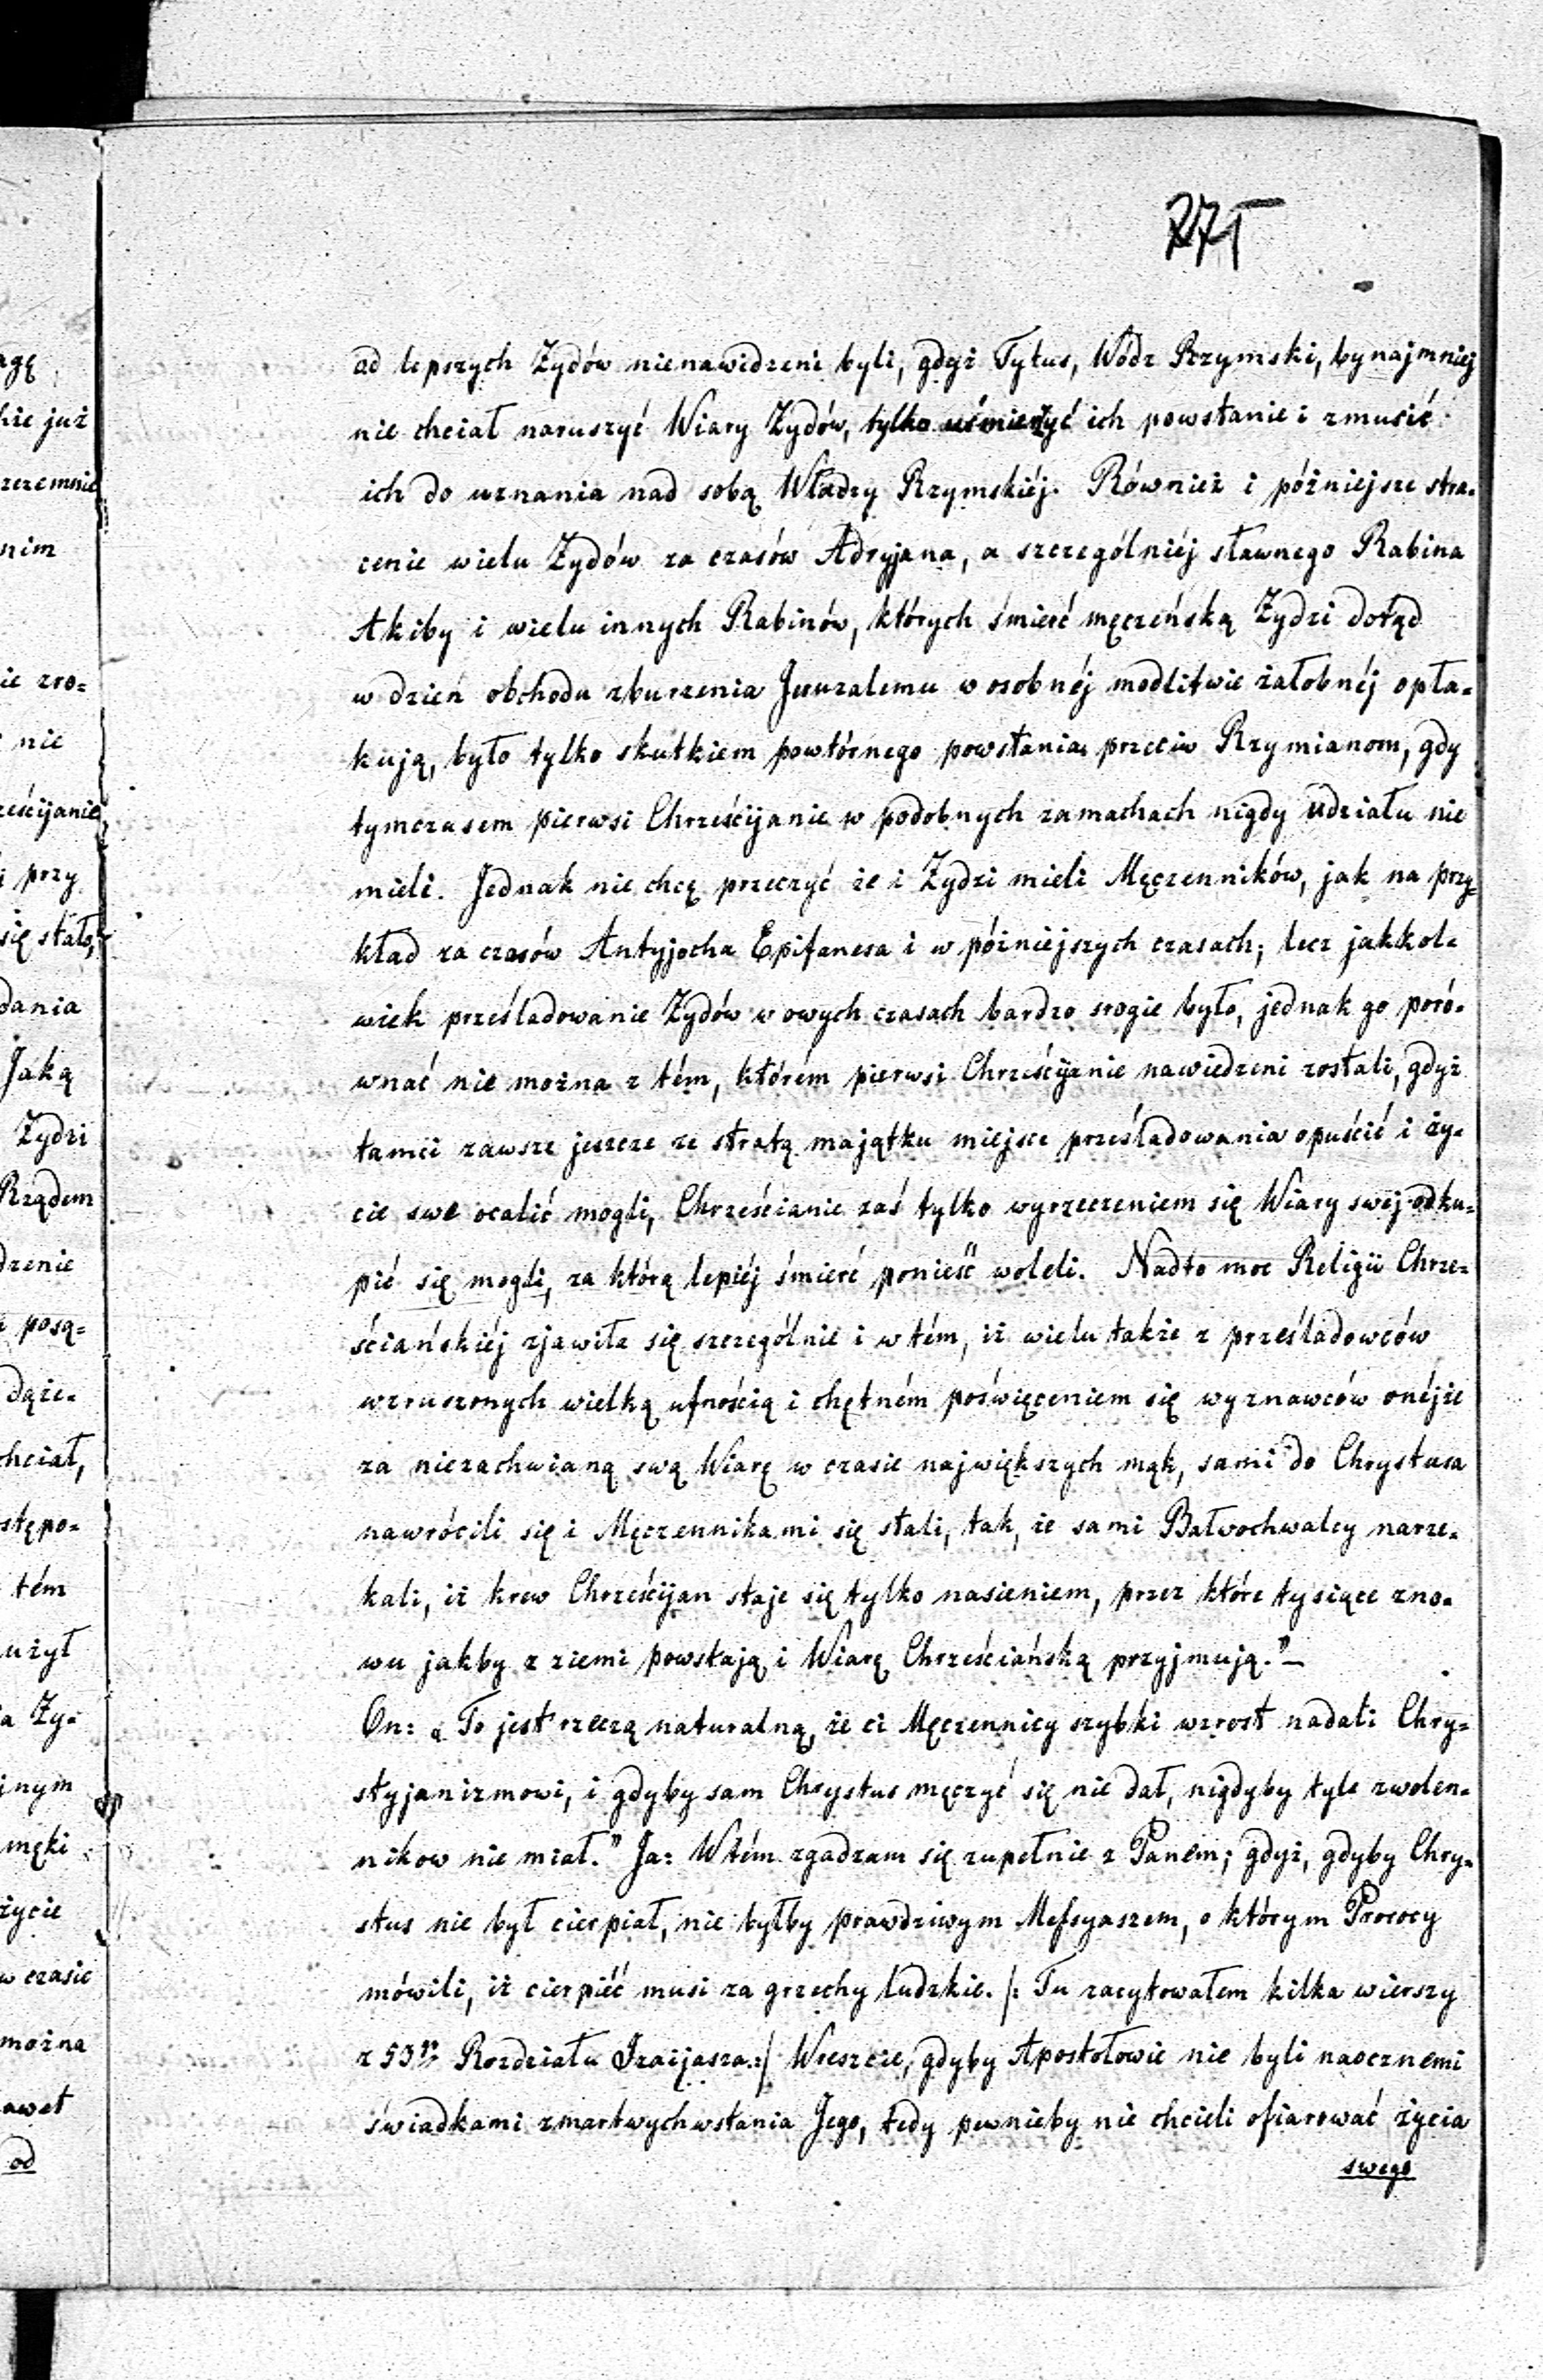 od lepszych Żydów nienawidzeni byli, gdyż Tytus, Wódz Rzymski, bynajmniej
nie chciał naruszyć Wiary Żydów, tylko uśmierzyć ich powstanie i zmusić
ich do uznania nad sobą Władzy Rzymskiéj. Również i późniejsze stra-
cenie wielu Żydów za czasów Adryjana, a szczególniéj sławnego Rabina
Akiby i wielu innych Rabinów, których śmierć męczeńską Żydzi dotąd
w dzień obchodu zburzenia Jeruzalemu w osobnéj modlitwie żałobnéj opła-
kują, było tylko skutkiem powtórnego powstania przeciw Rzymianom, gdy
tymczasem pierwsi Chrześcijanie w podobnych zamachach nigdy udziału nie
mieli. Jednak nie chcę przeczyć że i Żydzi mieli Męczenników, jak na przy-
kład za czasów Antyjocha Epifanesa i w późniejszych czasach; lecz jakkol-
wiek prześladowanie Żydów w owych czasach bardzo srogie było, jednak go poró-
wnać nie można z tém, którém pierwsi Chrześcijanie nawiedzeni zostali, gdyż
tamci zawsze jeszcze ze stratą majątku miejsce prześladowania opuścić i ży-
cie swe ocalić mogli, Chrześcianie zaś tylko wyrzeczeniem się Wiary swej odku-
pić się mogli, za którą lepiéj śmierć ponieść woleli. Nadto moc Religii Chrze-
ściańskiéj zjawiła się szczególnie i w tém, iż wielu także z prześladowców
wzruszonych wielką ufnością i chętném poświęceniem się wyznawców onéjże
za niezachwianą swą Wiarę w czasie największych mąk, sami do Chrystusa
nawrócili się i Męczennikami się stali, tak, że sami Bałwochwalcy narze-
kali, iż krew Chrześcijan staje się tylko nasieniem, przez które tysiące zno-
wu jakby z ziemi powstają i Wiarę Chrześciańską przyjmują."—
On: „To jest rzeczą naturalną, że ci Męczennicy szybki wzrost nadali Chry-
styjanizmowi, i gdyby sam Chrystus męczyć się nie dał, nigdyby tyle zwolen-
nikow nie miał." Ja: W tém zgadzam się zupełnie z Panem; gdyż, gdyby Chry-
stus nie był cierpiał, nie byłby prawdziwym Mefsyaszem, o którym Prorocy
mówili, iż cierpiéć musi za grzechy ludzkie. /: Tu zacytowałem kilka wierszy
z 53go Rozdziału Izaijasza.:/ Wreszcie, gdyby Apostołowie nie byli naocznemi
świadkami zmartwychwstania Jego, tedy pewnieby nie chcieli ofiarować życia
swego